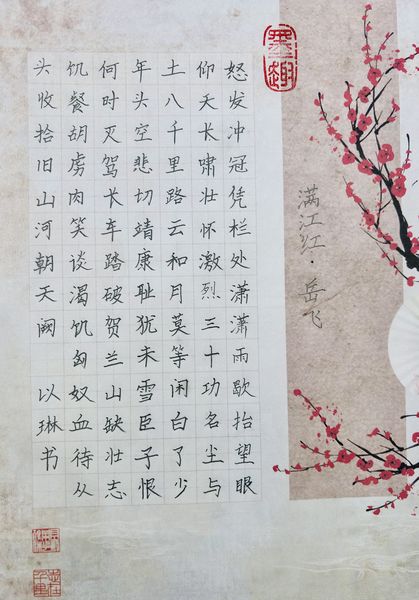 墨趣
满江红·岳飞
怒发冲冠凭栏处潇潇雨歇抬望眼
仰天长啸壮怀激烈三十功名尘与
土八千里路云和月莫等闲白了少
年头空悲切靖康耻犹未雪臣子恨
何时灭驾长车踏破贺兰山缺壮志
饥餐胡虏肉笑谈渴饥匈奴血待从
头收拾旧山河朝天阙 以琳书
志在千里